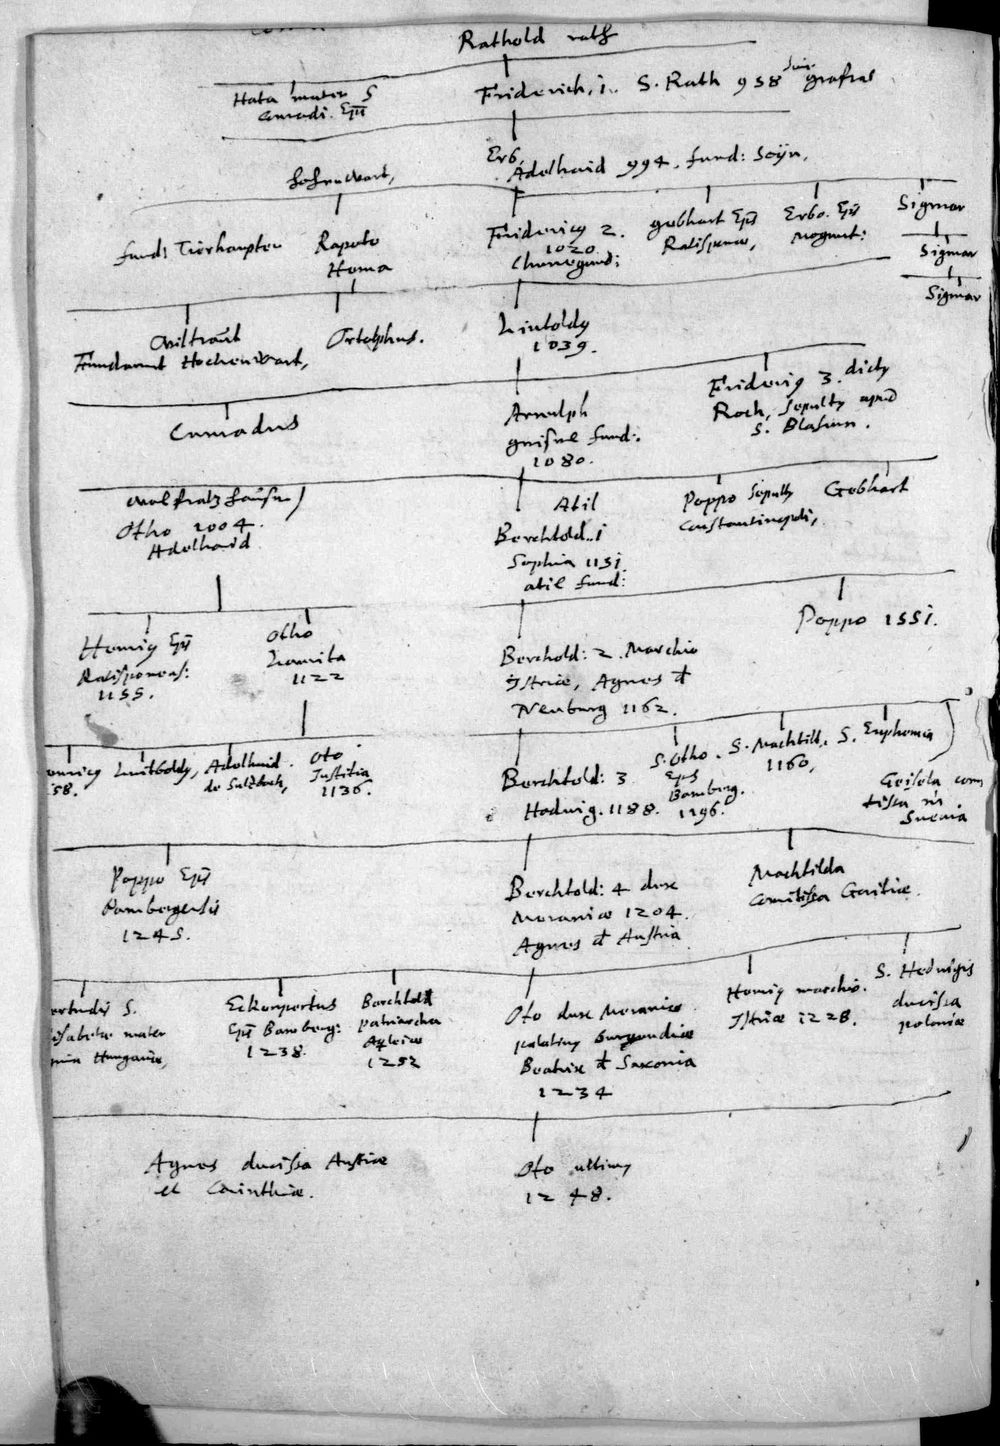 Rathold rath
Hata mater S
Conradi. Epi
Friderich, i. S. Rath 958
grafras
Erb,
Adelhaid 994. fund: Seÿn,
fund: Tierhaupten
Rapoto
Hema
Fridericus 2.
1020
Chunegund:
gebhart Eps
Ratispone,
Erbo. Eps
mogunt:
Sigmar
Sigmar
Sigmar
Wiltraut
Fundarunt Hochenwart,
Ortolphus.
Liutoldus
1039.
Friderig 3. dictus
Roch, sepultus apud
S. Blasium.
Conradus
Arnulph
fund:.
1080.
Wolfratzhausen)
Otho 1004.
Adelhaid
Atil
Berchtold..i
Sophia 1131
atil fund:
Poppo sepultus
Constantinopoli,
Gebhart
Poppo 1551.
Henricus Eps
Ratisponens:
1155.
Otho
Comita
1122
Berchold: 2 Marchio
Istriæ, Agnes d
Neuburg 1162.
58.
Luitboldus, Adelhaid.
de Sultzbach,
Oto
Justitia
1136.
Berchtold: 3
Hedwig. 1188.
S. Otho.
Eps
Bamberg.
1196.
S. Machtild.
1160,
S. Euphemia
Geisela com
tissa in
Suevia
Poppo Eps
Bambergensis
1245.
Berchtold: 4 dux
Meraniæ 1204.
Agnes d Austria
Machtilda
Comitissa Goritiæ.
ertrudis S.
isabetæ mater
Hungariæ,
Eckenpertus
Eps Bamberg:
1238.
Berchtold
patriarcha
Aqleiæ
1252
Oto dux Meraniæ
palatinus burgundiæ
Beatrix d Saxonia
1234
Henricus marchio.
Istriæ 1228.
S. Hedwigis
ducissa
poloniæ
Agnes ducissa Austriæ
et Carinthiæ.
Oto ultimus
1248.